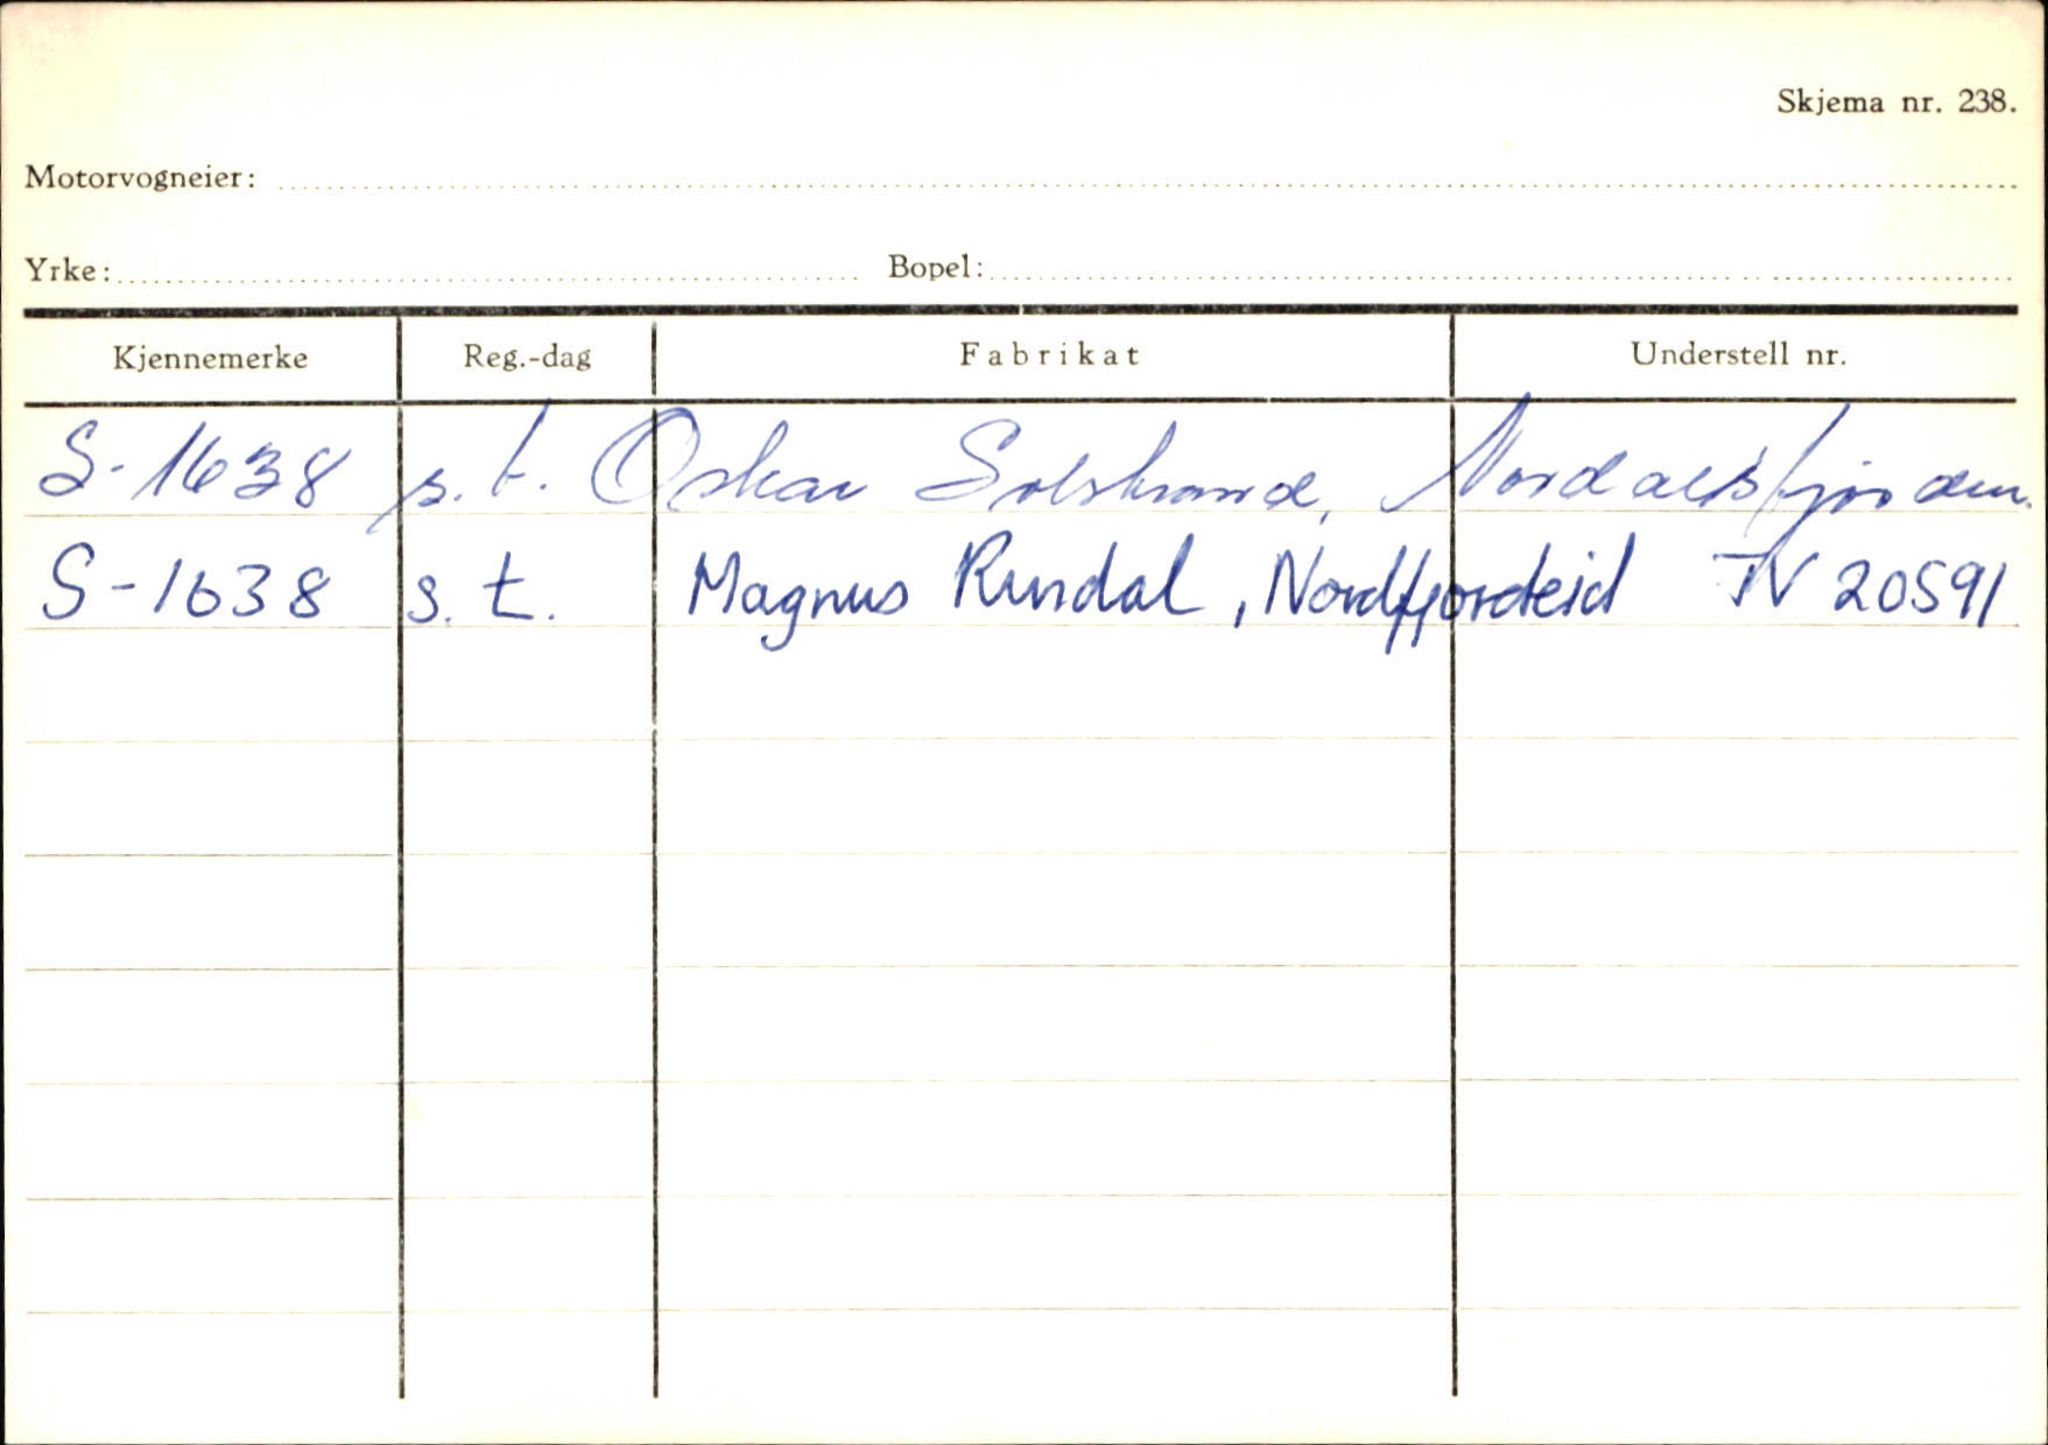 Skjema nr. 238.
Motorvogneier:
Yrke: Bopel:
Kjennemerke Reg.-dag Fabrikat Understell nr.
S-1638 s.t. Oskar Solstrand, Nordalsfjorden.
S-1638 s.t. Magnus Rundal, Nordfjordeid TV 20591